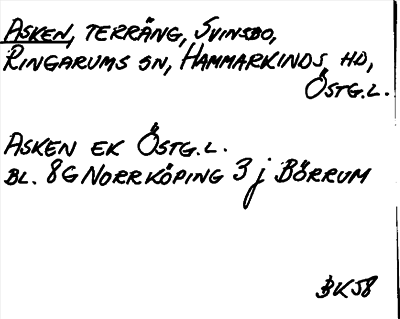 ASKEN, TERRÄNG, SVINSBO,
RINGARUMS SN, HAMMARKINDS HD,
ÖSTG.L.
ASKEN EK ÖSTG.L.
BL. 8G NORRKÖPING 3 j BÖRRUM
BK58